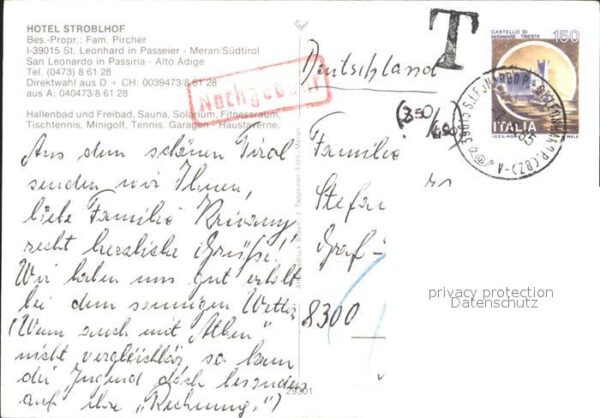 HOTEL STROBLHOF
Bes.-Propr.: Fam. Pircher
I-39015 St. Leonhard in Passeier - Meran/Südtirol
San Leonardo in Passiria - Alto Adige
Tel. (0473) 8 61 28
Direktwahl aus D + CH: 0039473/8 61 28
aus A: 040473/8 61 28
Hallenbad und Freibad, Sauna, Solarium, Fitnessraum,
Tischtennis, Minigolf, Tennis. Garagen - Haustaverne.
Nachgebühr
Aus dem schönen Tirol
senden wir Ihnen,
liebe Familie
recht herzliche Grüße!
Wir haben uns gut erholt
bei dem sonnigen Wetter
(Wenn auch mit „Athen"
nicht vergleichbar so kann
die Jugend doch besonders
auf ihre „Rechnung.")
29301
T
Deutschland
(850/
600)
CASTELLO DI
MIRAMARE TRIESTE
150
ITALIA
Familie
Stefan
Graf-
8300
privacy protection
Datenschutz